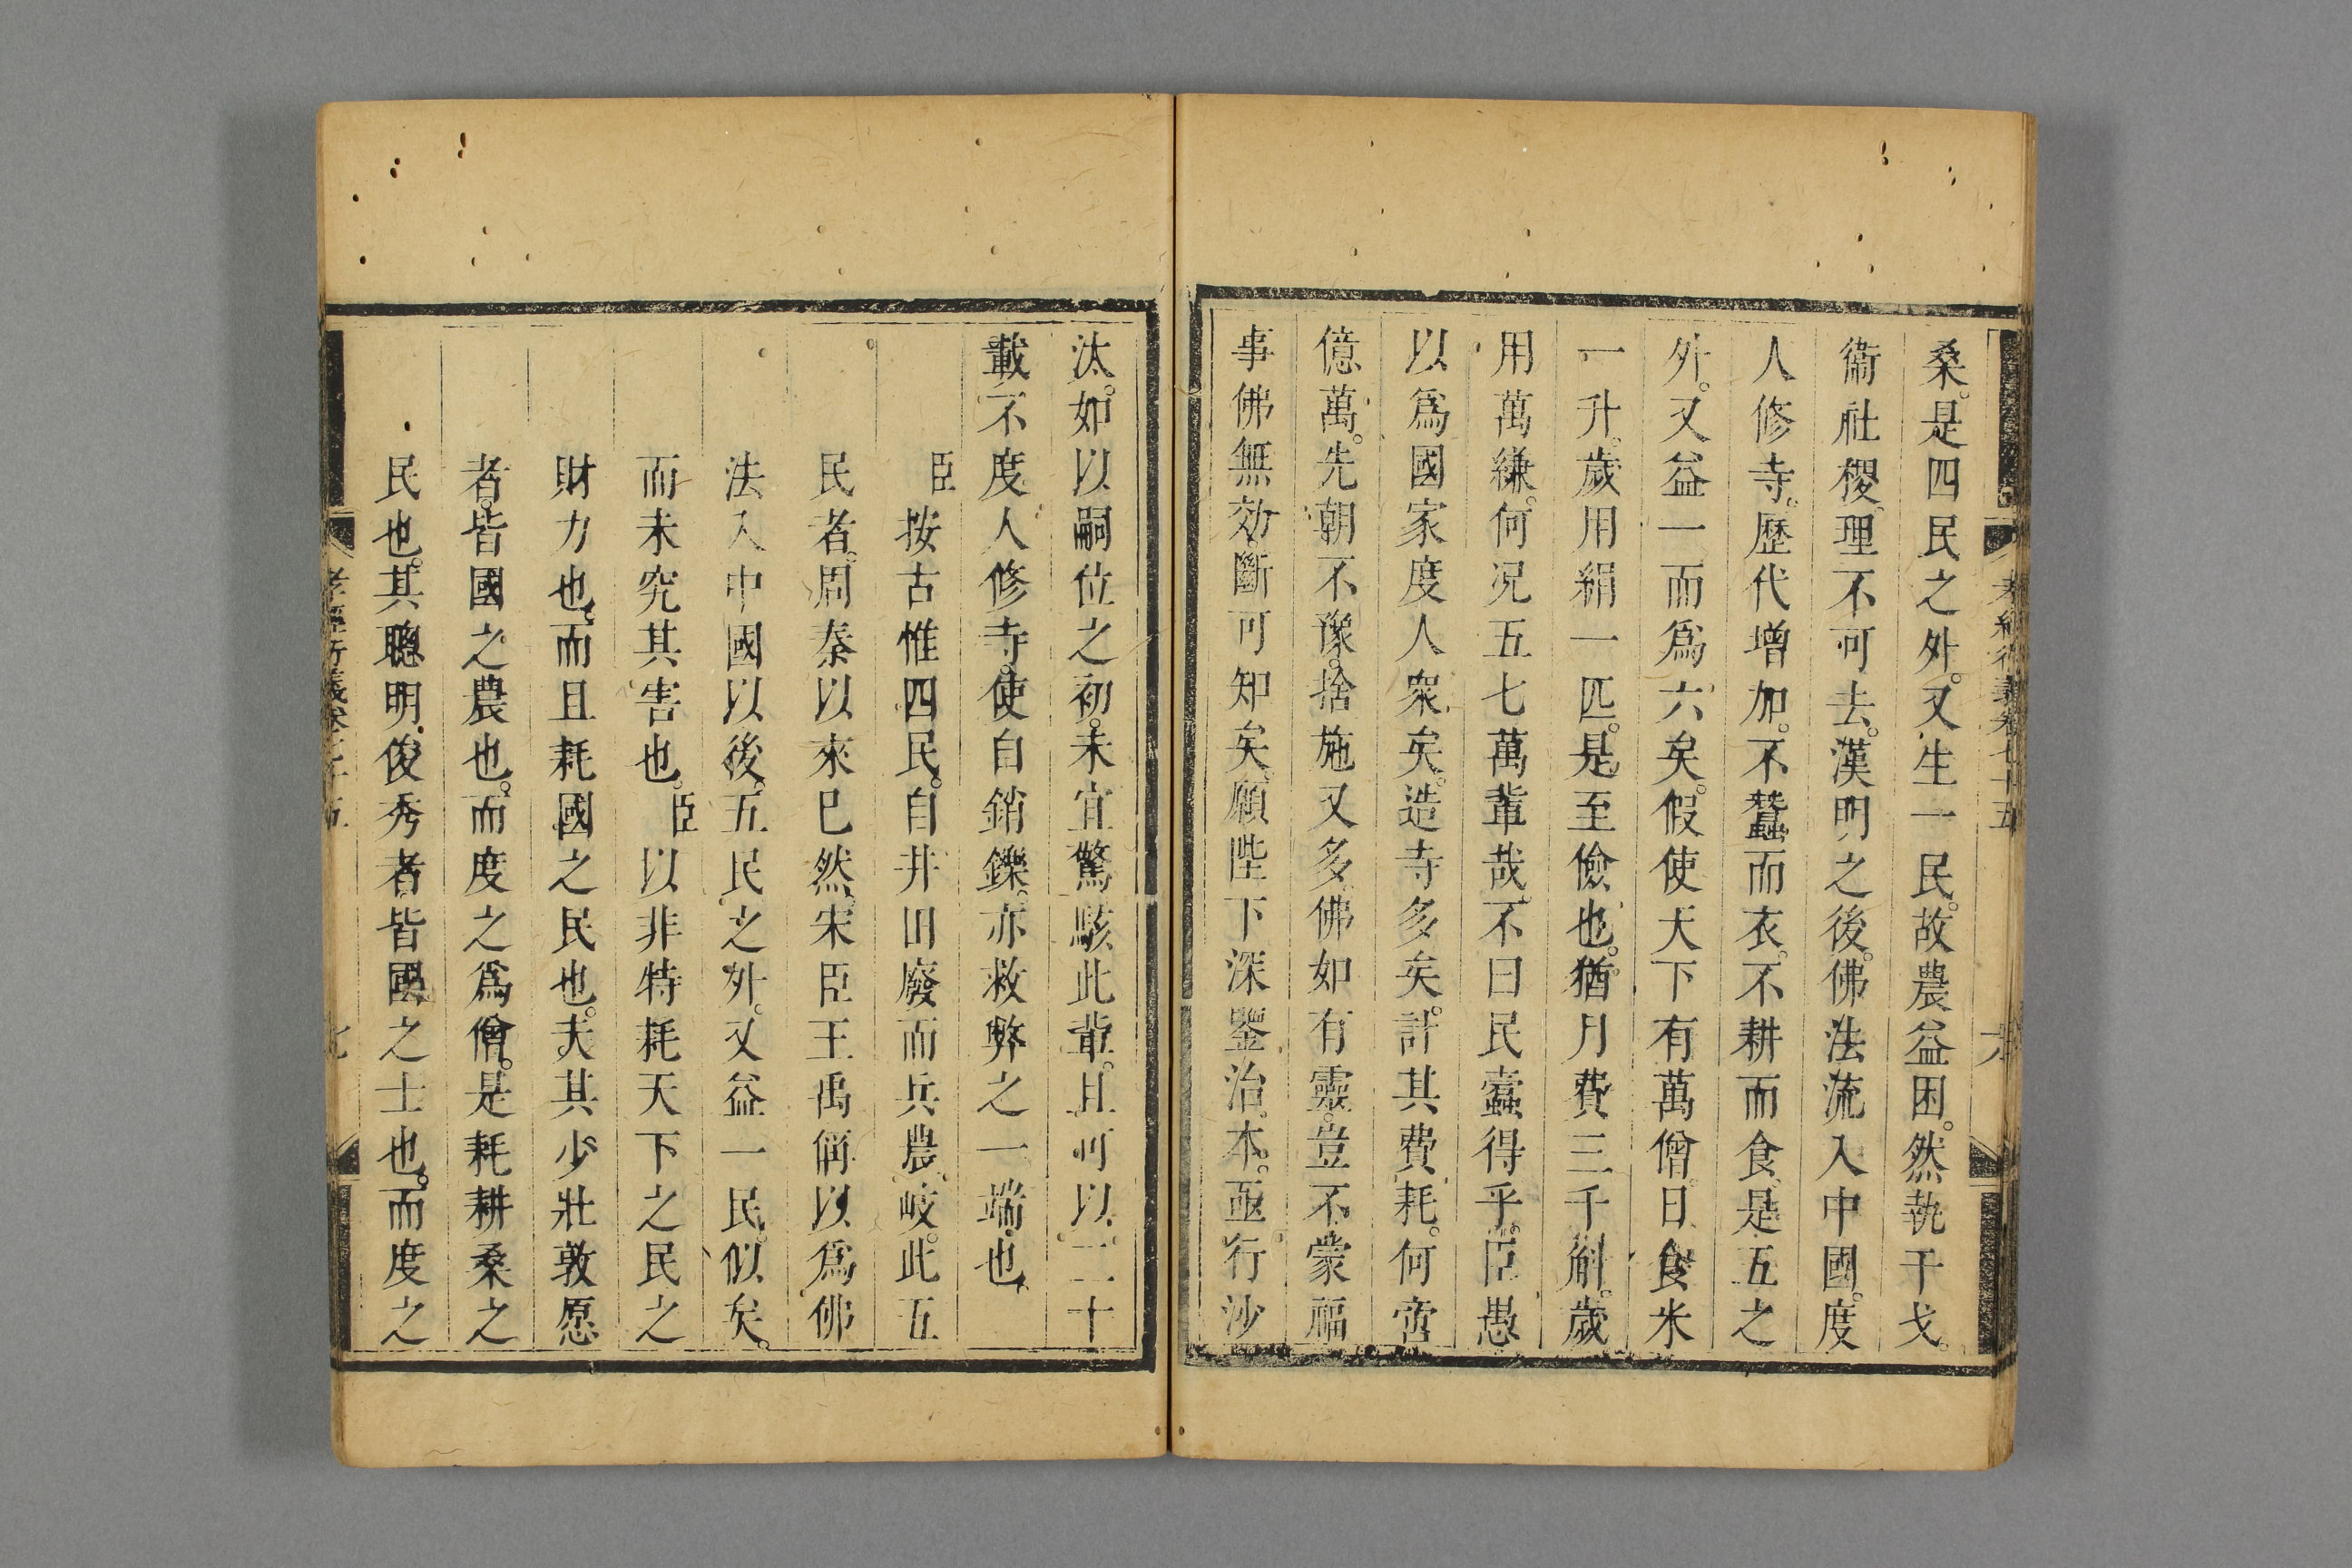 孝經衍義卷七十五
六
桑。是四民之外。又生一民。故農益困。然執干戈。
衞社稷。理不可去。漢明之後。佛法流入中國。度
人修寺。歷代增加。不蠶而衣。不耕而食。是五之
外。又益一而爲六矣。假使天下有萬僧。日食米
一升。歲用絹一匹。是至儉也。猶月費三千斛。歲
用萬縑。何况五七萬輩哉。不曰民蠹得乎。臣愚
以爲國家度人衆矣。造寺多矣。計其費耗。何啻
億萬。先朝不豫。捨施又多。佛如有靈。豈不蒙福
事佛無効。斷可知矣。願陛下深鑒治本。亟行沙
汰。如以嗣位之初。未宜驚駭此輩。且可以二十
載不度人修寺。使自銷鑠。亦救弊之一端也。
臣按古惟四民。自井田廢而兵農岐。此五
民者。周秦以來已然。宋臣王禹偁以爲佛
法入中國以後。五民之外。又益一民。似矣。
而未究其害也。臣以非特耗天下之民之
財力也。而且耗國之民也。夫其少壯敦愿
者。皆國之農也。而度之爲僧。是耗耕桑之
民也。其聰明俊秀者皆國之士也。而度之
孝經衍義卷七十五
七